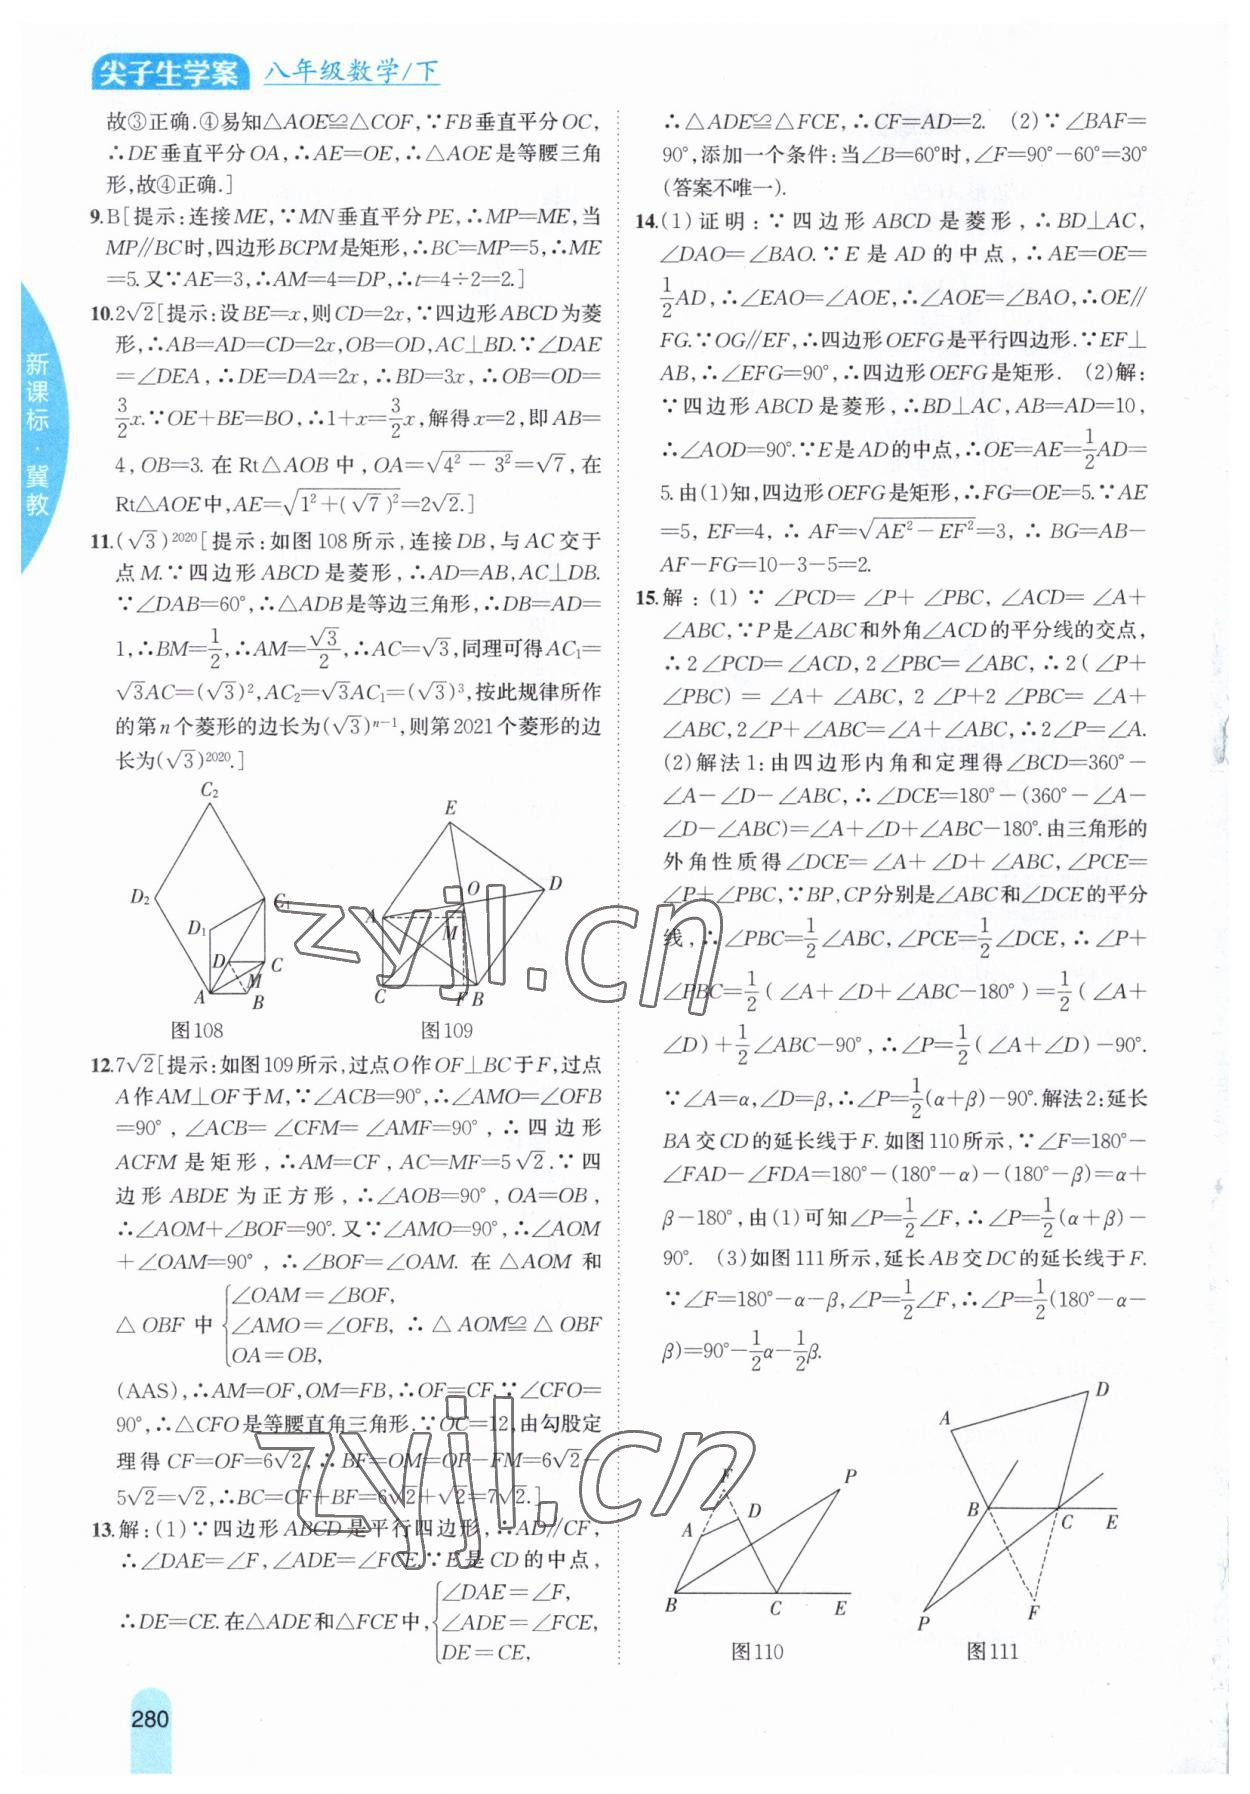 尖子生学案 八年级数学/下
故③正确.④易知△AOE≌△COF,∵FB垂直平分OC,
∴DE垂直平分OA,∴AE=OE,∴△AOE是等腰三角
形,故④正确.]
9.B[提示:连接ME,∵MN垂直平分PE,∴MP=ME,当
MP∥BC时,四边形BCPM是矩形,∴BC=MP=5,∴ME
=5.又∵AE=3,∴AM=4=DP,∴t=4÷2=2.]
10.2√2[提示:设BE=x,则CD=2x,∵四边形ABCD为菱
形,∴AB=AD=CD=2x,OB=OD,AC⊥BD.∵∠DAE
=∠DEA,∴DE=DA=2x,∴BD=3x,∴OB=OD=
3/2x.∵OE+BE=BO,∴1+x=3/2x,解得x=2,即AB=
4,OB=3.在Rt△AOB中,OA=√(4²-3²)=√7,在
Rt△AOE中,AE=√(1²+(√7)²)=2√2.]
11.(√3)²⁰²⁰[提示:如图108所示,连接DB,与AC交于
点M.∵四边形ABCD是菱形,∴AD=AB,AC⊥DB.
∵∠DAB=60°,∴△ADB是等边三角形,∴DB=AD=
1,∴BM=1/2,∴AM=√3/2,∴AC=√3,同理可得AC₁=
√3AC=(√3)²,AC₂=√3AC₁=(√3)³,按此规律所作
的第n个菱形的边长为(√3)ⁿ⁻¹,则第2021个菱形的边
长为(√3)²⁰²⁰.]
C₂
D₂
C₁
D₁
D
C
M
A
B
图108
E
O
D
A
M
C
F B
图109
12.7√2[提示:如图109所示,过点O作OF⊥BC于F,过点
A作AM⊥OF于M,∵∠ACB=90°,∴∠AMO=∠OFB
=90°,∠ACB=∠CFM=∠AMF=90°,∴四边形
ACFM是矩形,∴AM=CF,AC=MF=5√2.∵四
边形ABDE为正方形,∴∠AOB=90°,OA=OB,
∴∠AOM+∠BOF=90°.又∵∠AMO=90°,∴∠AOM
+∠OAM=90°,∴∠BOF=∠OAM.在△AOM和
△OBF中{∠OAM=∠BOF,
∠AMO=∠OFB,∴△AOM≌△OBF
OA=OB,
(AAS),∴AM=OF,OM=FB,∴OF=CF.∵∠CFO=
90°,∴△CFO是等腰直角三角形.∵OC=12,由勾股定
理得CF=OF=6√2,∴BF=OM=OF-FM=6√2-
5√2=√2,∴BC=CF+BF=6√2+√2=7√2.]
13.解:(1)∵四边形ABCD是平行四边形,∴AD∥CF,
∴∠DAE=∠F,∠ADE=∠FCE.∵E是CD的中点,
∴DE=CE.在△ADE和△FCE中,{∠DAE=∠F,
∠ADE=∠FCE,
DE=CE,
∴△ADE≌△FCE,∴CF=AD=2. (2)∵∠BAF=
90°,添加一个条件:当∠B=60°时,∠F=90°-60°=30°
(答案不唯一).
14.(1)证明:∵四边形ABCD是菱形,∴BD⊥AC,
∠DAO=∠BAO.∵E是AD的中点,∴AE=OE=
1/2AD,∴∠EAO=∠AOE,∴∠AOE=∠BAO,∴OE∥
FG.∵OG∥EF,∴四边形OEFG是平行四边形.∵EF⊥
AB,∴∠EFG=90°,∴四边形OEFG是矩形. (2)解:
∵四边形ABCD是菱形,∴BD⊥AC,AB=AD=10,
∴∠AOD=90°.∵E是AD的中点,∴OE=AE=1/2AD=
5.由(1)知,四边形OEFG是矩形,∴FG=OE=5.∵AE
=5,EF=4,∴AF=√(AE²-EF²)=3,∴BG=AB-
AF-FG=10-3-5=2.
15.解:(1)∵∠PCD=∠P+∠PBC,∠ACD=∠A+
∠ABC,∵P是∠ABC和外角∠ACD的平分线的交点,
∴2∠PCD=∠ACD,2∠PBC=∠ABC,∴2(∠P+
∠PBC)=∠A+∠ABC,2∠P+2∠PBC=∠A+
∠ABC,2∠P+∠ABC=∠A+∠ABC,∴2∠P=∠A.
(2)解法1:由四边形内角和定理得∠BCD=360°-
∠A-∠D-∠ABC,∴∠DCE=180°-(360°-∠A-
∠D-∠ABC)=∠A+∠D+∠ABC-180°.由三角形的
外角性质得∠DCE=∠A+∠D+∠ABC,∠PCE=
∠P+∠PBC,∵BP,CP分别是∠ABC和∠DCE的平分
线,∴∠PBC=1/2∠ABC,∠PCE=1/2∠DCE,∴∠P+
∠PBC=1/2(∠A+∠D+∠ABC-180°)=1/2(∠A+
∠D)+1/2∠ABC-90°,∴∠P=1/2(∠A+∠D)-90°.
∵∠A=α,∠D=β,∴∠P=1/2(α+β)-90°.解法2:延长
BA交CD的延长线于F.如图110所示,∵∠F=180°-
∠FAD-∠FDA=180°-(180°-α)-(180°-β)=α+
β-180°,由(1)可知∠P=1/2∠F,∴∠P=1/2(α+β)-
90°. (3)如图111所示,延长AB交DC的延长线于F.
∵∠F=180°-α-β,∠P=1/2∠F,∴∠P=1/2(180°-α-
β)=90°-1/2α-1/2β.
F
P
A
D
B
C
E
图110
D
A
B
C
E
P
F
图111
新课标·冀教
280
zyjl.cn
zyjl.cn